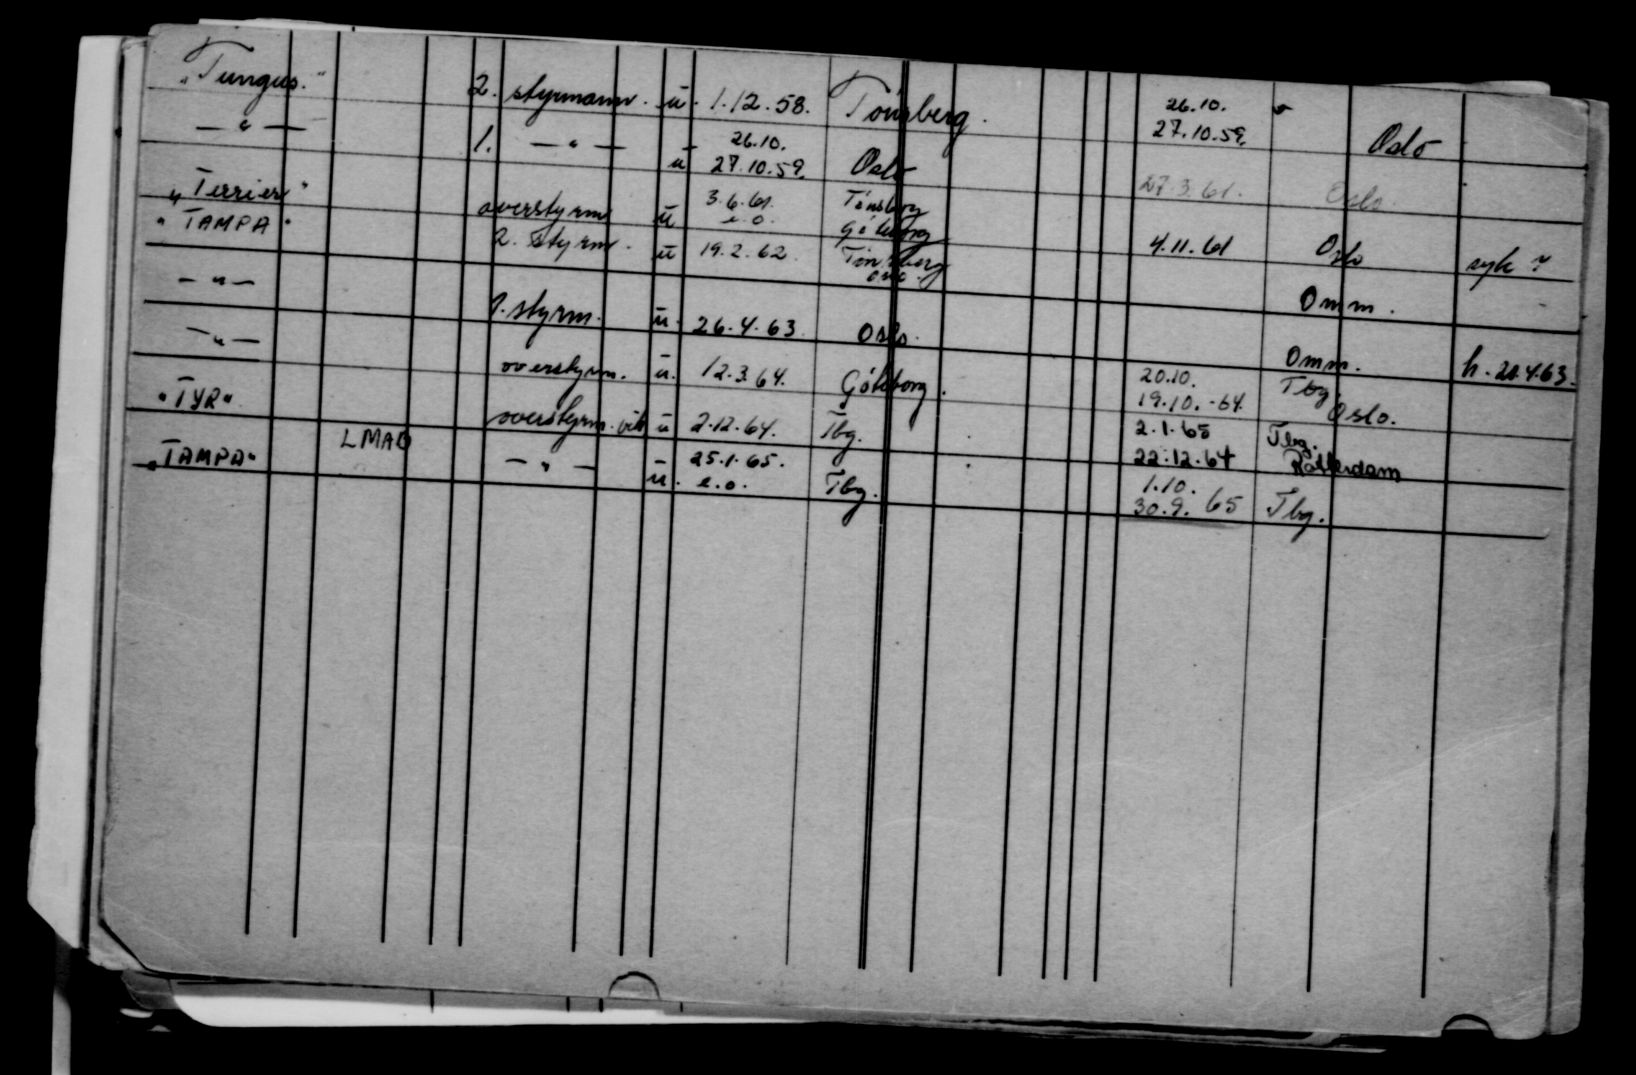 "Tungus." 2. styrmann. ü. 1.12.58. Tönsberg. 26.10. 27.10.59. Oslo
— " — 1. — " — ü 26.10. 27.10.59. Oslo 27.3.61. Oslo.
"Terrier" overstyrm ü 3.6.61. e.o. Tönsberg Göteborg 4.11.61 Oslo syk
"TAMPA" 2. styrm. ü 19.2.62. Tönsberg omm. Omm.
— " — 1. styrm. ü. 26.4.63. Oslo. Omm. h. 21.4.63.
— " — overstyrm. ü. 12.3.64. Göteborg. 20.10. 19.10.-64. Tbg Oslo.
"TYR" overstyrm. vik ü 2.12.64. Tbg. 2.1.65 22.12.64 Tbg. Rotterdam
"TAMPA" LMAO — " — ü. 25.1.65. e.o. Tbg. 1.10. 30.9.65 Tbg.